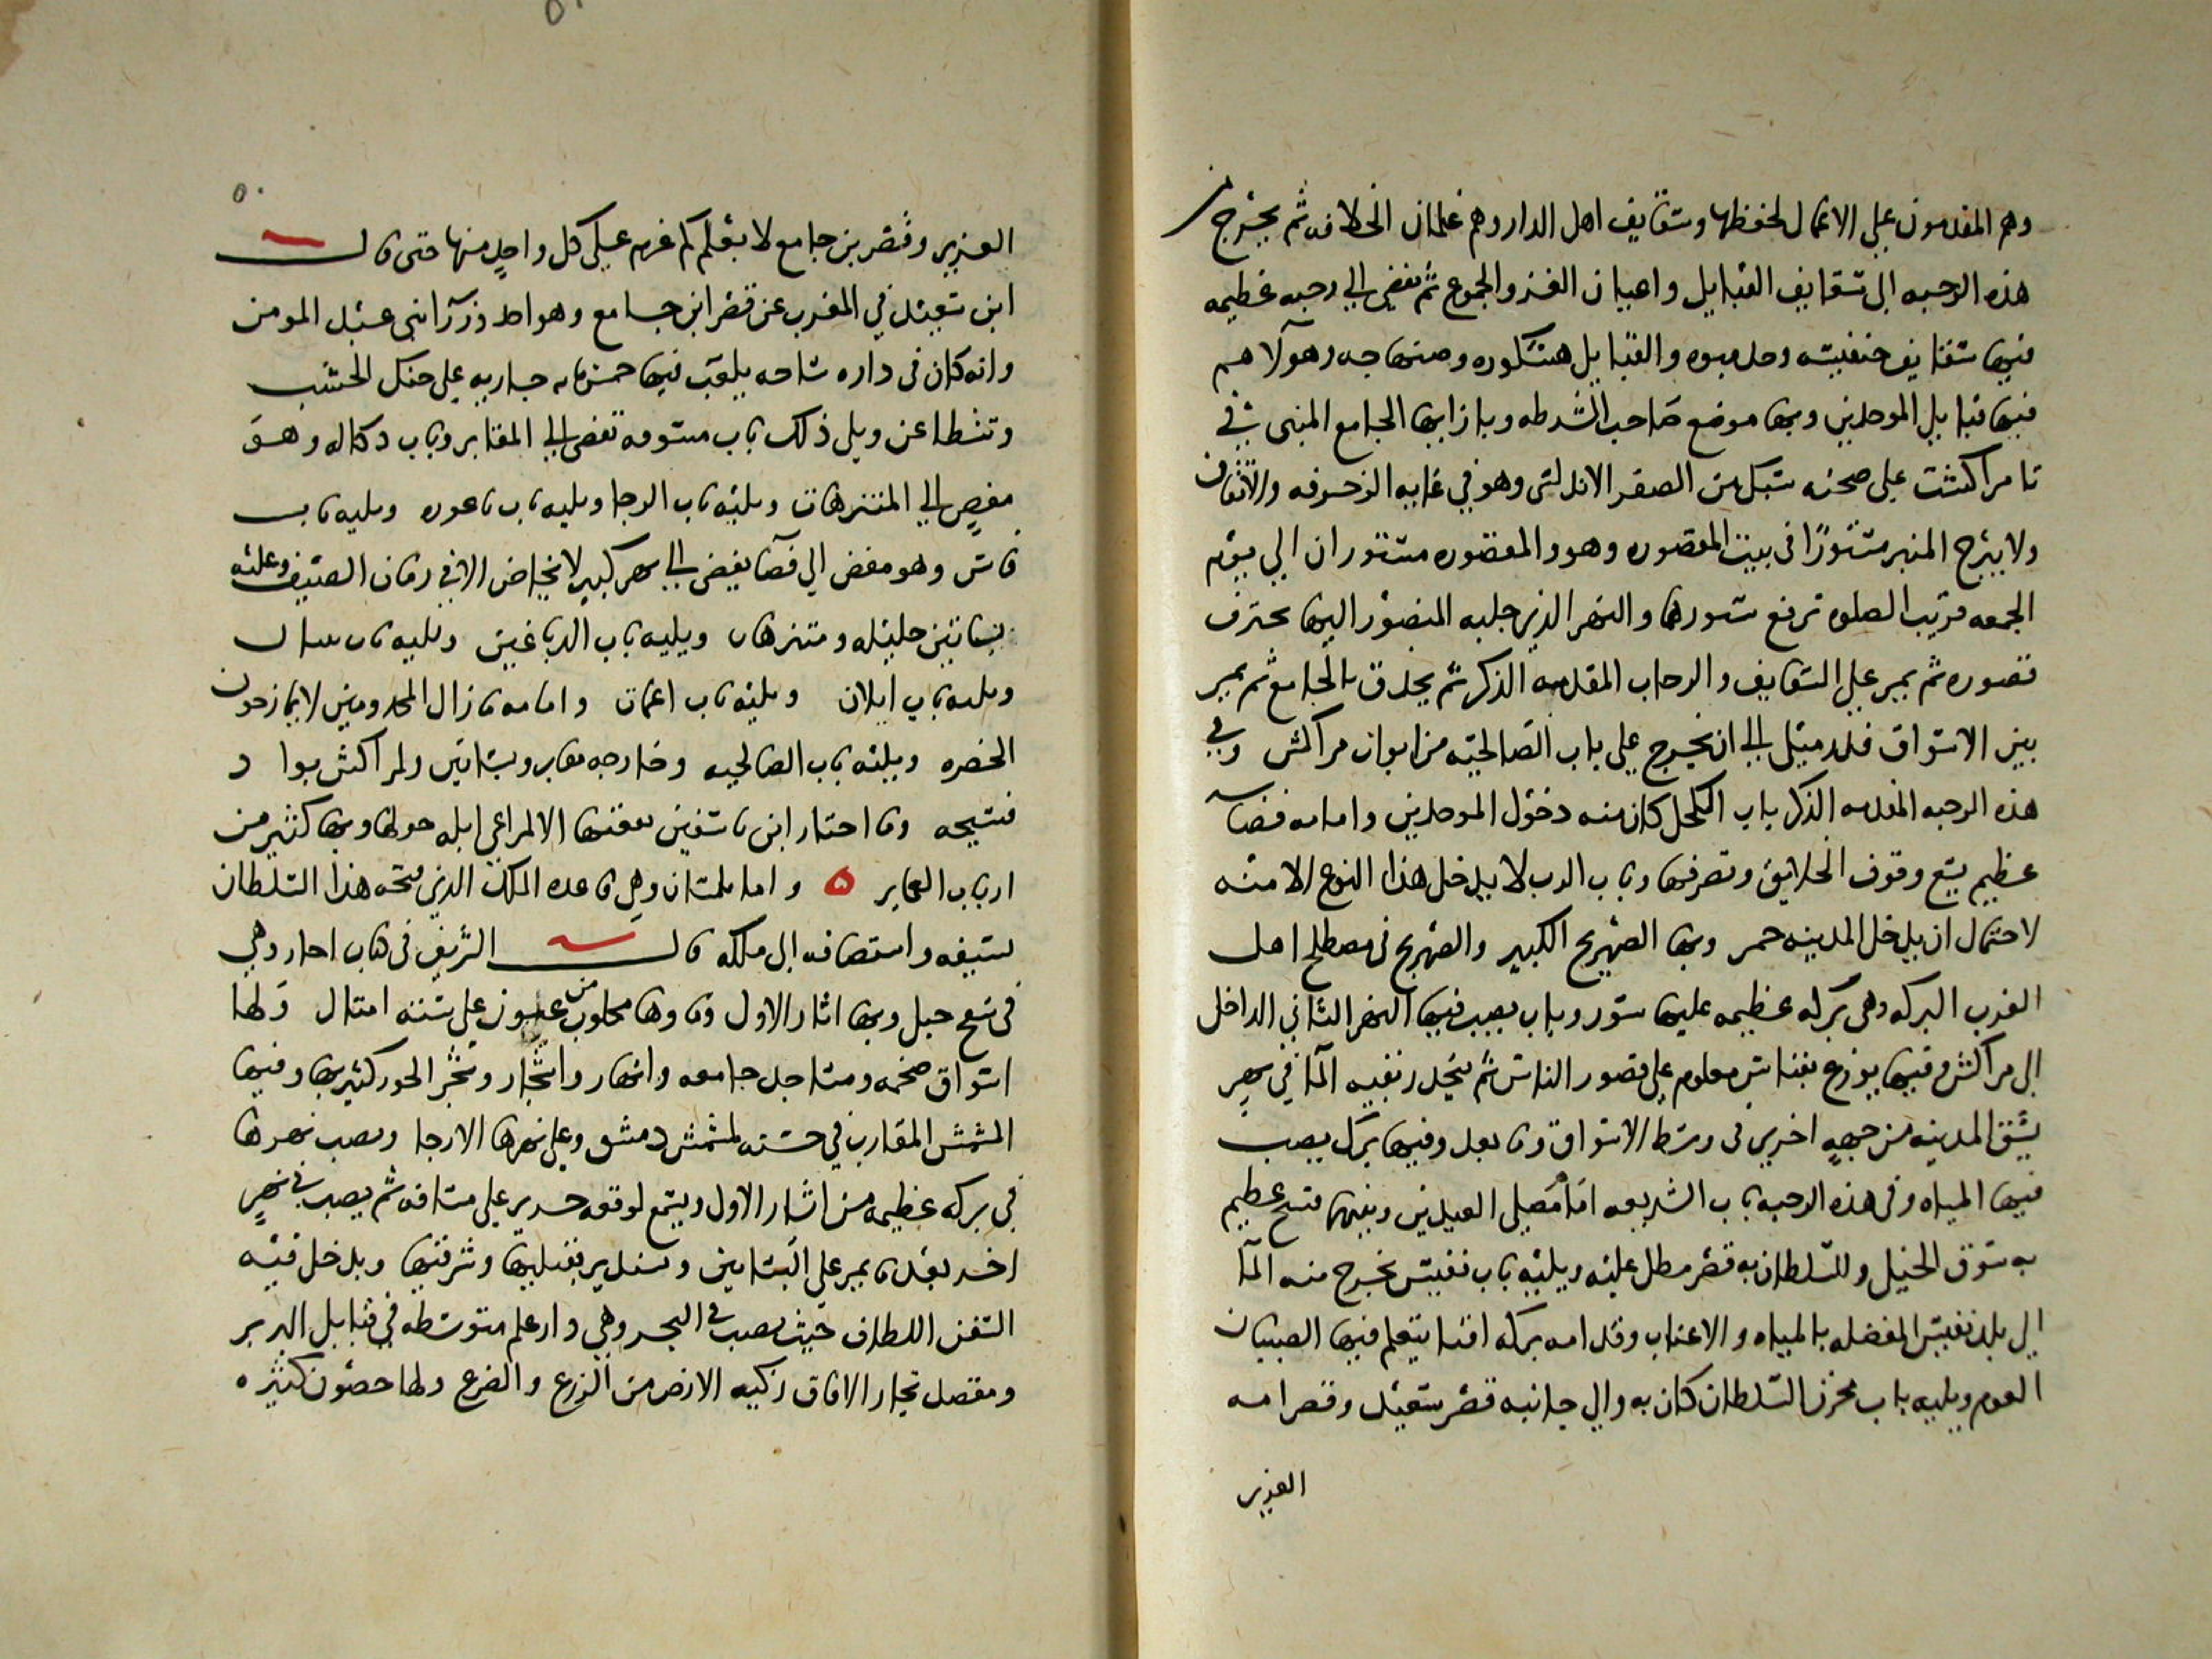 وهم المقدمون علي الاعمال لحفظها وسقايف اهل الدار وهم غلمان الخلافه ثم يخرج من
هذه الرحبه الى سقايف القبايل واعيان الغز والجموع ثم تفضي الي رحبه عظيمه
فيها سقايف حنفيسه وحدميوه والقبايل هسكوره وصنهاجه وهولا هم
فيها قبايل الموحدين وبها موضع صاحب الشرطه وبازايها الجامع المبني في
تامراكشت علي صحنه شبك من الصفر الاندلسي وهو في غايه الزخرفه والاتقان
ولا يبرح المنبر مستورًا في بيت المقصوره وهو والمقصوره مستوران الي يوم
الجمعه قريب الصلوه ترفع ستورها والنهر الذي جلبه المنصور اليها يخترق
قصوره ثم يمر علي السقايف والرحاب المقدمه الذكر ثم يحدق بالجامع ثم يمر
بين الاسواق فلد ميل الي ان يخرج علي باب الصالحيه من ابواب مراكش وفي
هذه الرحبه المقدمه الذكر باب الكحل كان منه دخول الموحدين وامامه فضا
عظيم يسع وقوف الخلايق وتصرفها وباب الرب لا يدخل هذا النوع الا منه
لاحتمال ان يدخل المدينه خمر وبها الصهريج الكبير والصهريج في مصطلح اهل
الغرب البركه وهي بركه عظيمه عليها سور وباب يصب فيها النهر الثاني الداخل
الى مراكش وفيها يوزع بقسناس معلوم علي قصور الناس ثم ينحدر بقيه الما في نهر
يشق المدينه من جهه اخري في وسط الاسواق وما بعد وفيها برك يصب
فيها المياه وفي هذه الرحبه باب الشريعه امام مصلى العيدين وبينهما فسح عظيم
به سوق الخيل وللسلطان به قصر مطل عليه ويليه باب نفيس يخرج منه الما
الي بلد نفيس المفضله بالمياه والاعناب وقدامه بركه اقنا يتعلم فيها الصبيان
العوم ويليه باب مخزن السلطان كان به والي جانبه قصر سعيد وقصر امه
العزيز
٥٠
العزيز وقصر بن جامع لا يعلم كم غرم علي كل واحد منها حتى قال
ابن سعيد في المغرب عن قصر ابن جامع وهو احد وزرا بني عبد المومن
وانه كان في داره ساحه يلعب فيها خمس مايه جاريه علي حنك الخشب
وتشطاعن ويلي ذلك باب مسوفه تفضي الي المقابر وباب دكاله وهو
مفض الي المتنزهات ويليه باب الرجا ويليه باب تاعورت ويليه باب
فاس وهو مفض الي فضا يفضي الي نهر كبير لا يخاض الا في زمان الصيف وعليه
بساتين جليله ومتنزهات ويليه باب الدباغين ويليه باب سال
ويليه باب ايلان ويليه باب اغمات وامامه مازال المجذومين لا يمازحون
الحضره ويليه باب الصالحيه وخارجه مقابر وبساتين ولمراكش بوادٍ
فسيحه وما اختار ابن تاشفين بقعتها الا لمراعي ابله حولها وبها كثير من
ارباب العماير ه واما تلمسان وهي قاعده الملك الذي فتحه هذا السلطان
بسيفه واستضافه الى ملكه قال الشريف في كتاب اجار وهي
في سفح جبل وبها اثار الاول وماوها مجلوب من عيون علي ستة اميال ولها
اسواق ضخمه ومساجد جامعه وانهار واشجار وشجر الجوز كثير بها وفيها
المشمش المقارب في حسنه لمشمش دمشق وعلي نهرها الارحا ويصب نهرها
في بركه عظيمه من اثار الاول ويسمع لوقعه خرير علي مسافه ثم يصب في نهرٍ
اخر بعد ما يمر علي البساتين ويستدير بقبليها وشرقيها ويدخل فيه
السفن اللطاف حيث يصب في البحر وهي دار علم متوسطه في قبايل البربر
ومقصد تجار الافاق زكيه الارض من الزرع والضرع ولها حصون كثيره